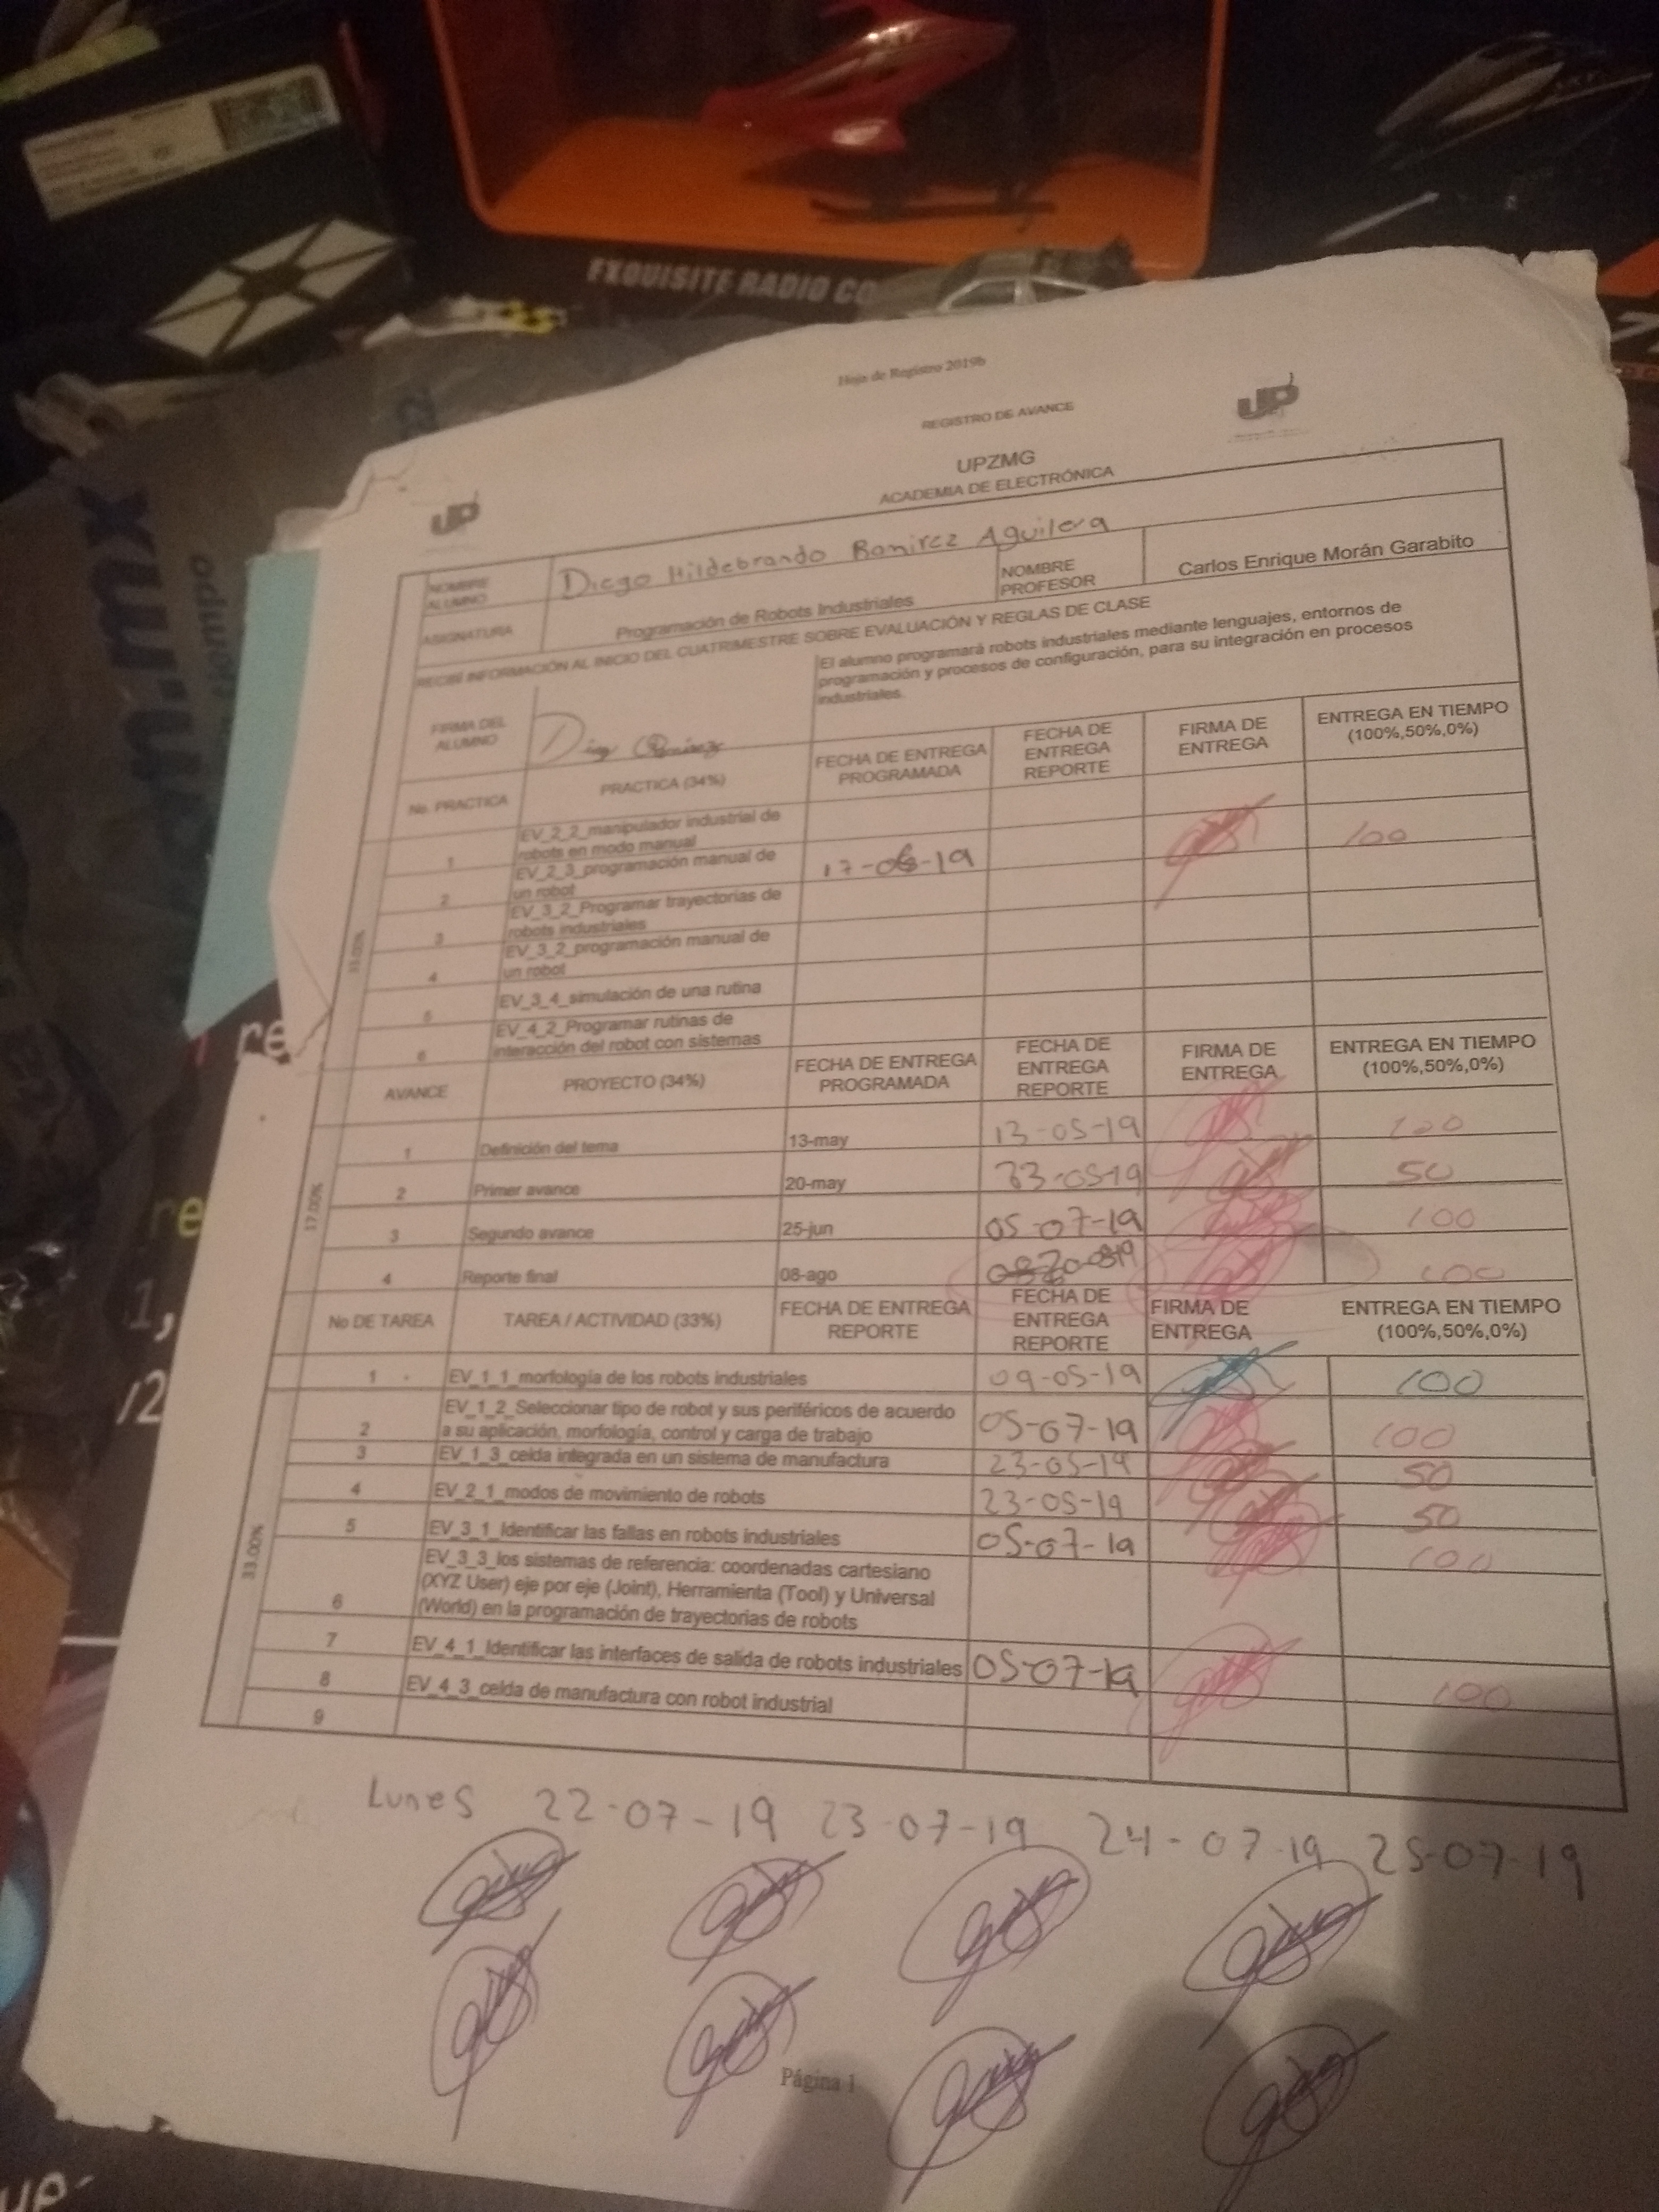 EXQUISITE RADIO CO
Hoja de Registro 2019b
REGISTRO DE AVANCE
UP
UP
UPZMG
ACADEMIA DE ELECTRÓNICA
NOMBRE ALUMNO Diego Hildebrando Ramirez Aguilera NOMBRE PROFESOR Carlos Enrique Morán Garabito
ASIGNATURA Programación de Robots Industriales
RECIBÍ INFORMACIÓN AL INICIO DEL CUATRIMESTRE SOBRE EVALUACIÓN Y REGLAS DE CLASE
El alumno programará robots industriales mediante lenguajes, entornos de
programación y procesos de configuración, para su integración en procesos
industriales.
FIRMA DEL ALUMNO
No. PRACTICA PRACTICA (34%) FECHA DE ENTREGA PROGRAMADA FECHA DE ENTREGA REPORTE FIRMA DE ENTREGA ENTREGA EN TIEMPO (100%,50%,0%)
33.00%
1 EV_2_2_manipulador industrial de robots en modo manual
2 EV_2_3_programación manual de un robot 17-06-19 100
3 EV_3_2_Programar trayectorias de robots industriales
4 EV_3_2_programación manual de un robot
5 EV_3_4_simulación de una rutina
6 EV_4_2_Programar rutinas de interacción del robot con sistemas
AVANCE PROYECTO (34%) FECHA DE ENTREGA PROGRAMADA FECHA DE ENTREGA REPORTE FIRMA DE ENTREGA ENTREGA EN TIEMPO (100%,50%,0%)
17.00%
1 Definición del tema 13-may 13-05-19 100
2 Primer avance 20-may 23-05-19 50
3 Segundo avance 25-jun 05-07-19 100
4 Reporte final 08-ago 100
No DE TAREA TAREA / ACTIVIDAD (33%) FECHA DE ENTREGA REPORTE FECHA DE ENTREGA REPORTE FIRMA DE ENTREGA ENTREGA EN TIEMPO (100%,50%,0%)
33.00%
1 EV_1_1_morfología de los robots industriales 09-05-19 100
2 EV_1_2_Seleccionar tipo de robot y sus periféricos de acuerdo a su aplicación, morfología, control y carga de trabajo 05-07-19 100
3 EV_1_3_celda integrada en un sistema de manufactura 23-05-19 50
4 EV_2_1_modos de movimiento de robots 23-05-19 50
5 EV_3_1_Identificar las fallas en robots industriales 05-07-19 100
6 EV_3_3_los sistemas de referencia: coordenadas cartesiano (XYZ User) eje por eje (Joint), Herramienta (Tool) y Universal (World) en la programación de trayectorias de robots
7 EV_4_1_Identificar las interfaces de salida de robots industriales 05-07-19 100
8 EV_4_3_celda de manufactura con robot industrial
9
Lunes 22-07-19 23-07-19 24-07-19 25-07-19
Página 1